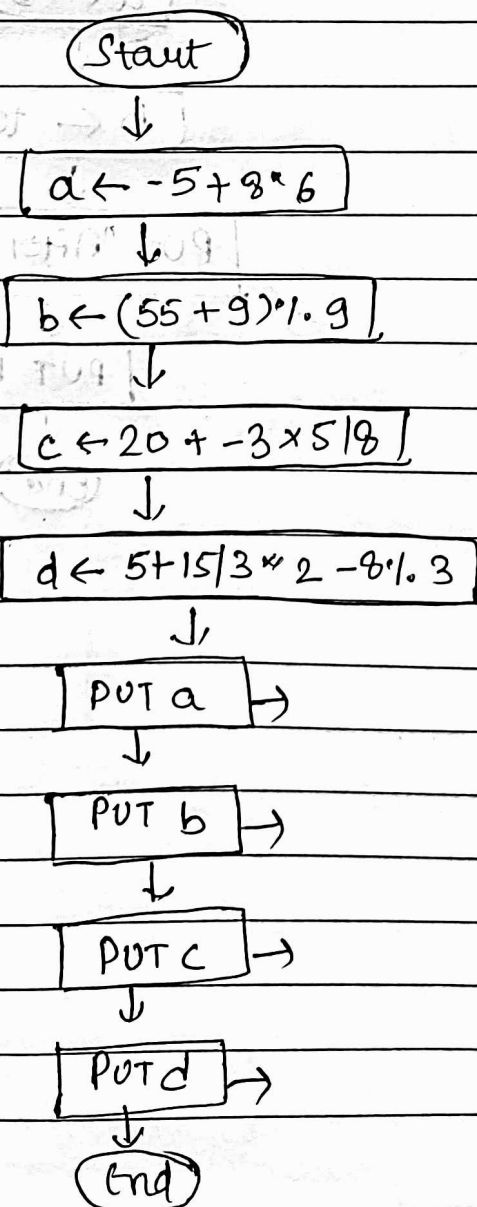 Start
↓
a ← -5 + 8 * 6
↓
b ← (55 + 9) % 9
↓
c ← 20 + -3 * 5 / 8
↓
d ← 5 + 15 / 3 * 2 - 8 % 3
↓
PUT a →
↓
PUT b →
↓
PUT c →
↓
PUT d →
↓
End